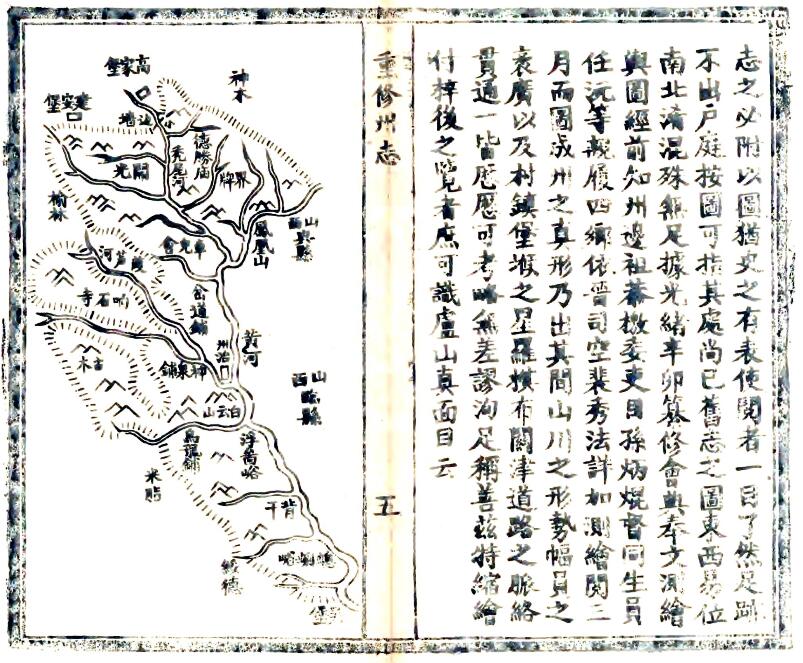 志之必附以圖猶史之有表使閱者一目了然足跡
不出户庭按圖可指其處尚已舊志之圖東西易位
南北淆混殊無足據光緒辛卯纂修會典奉文測繪
輿圖經前知州邊祖恭檄委吏目孫炳焜督同生員
任沅等親履四鄉依晉司空裴秀法詳加測繪閱三
月而圖成州之真形乃出其間山川之形勢幅員之
袤廣以及村鎮堡堠之星羅棋布關津道路之脈絡
貫通一皆歷歷可考略無差謬洵足稱善茲特縮繪
付梓後之覽者庶可識盧山真面目云
重修州志
五
神木
高家堡
建安堡
邊墻
禿尾河
德勝庙
界牌
開光
榆林
山西興縣
鳳凰山
車會
葭芦河
石寺
道鎮
黄河
州治
神泉鋪
山西臨縣
木
白云山
烏龍鋪
浮圖峪
米脂
背干
螅蜊峪
綏德
堡